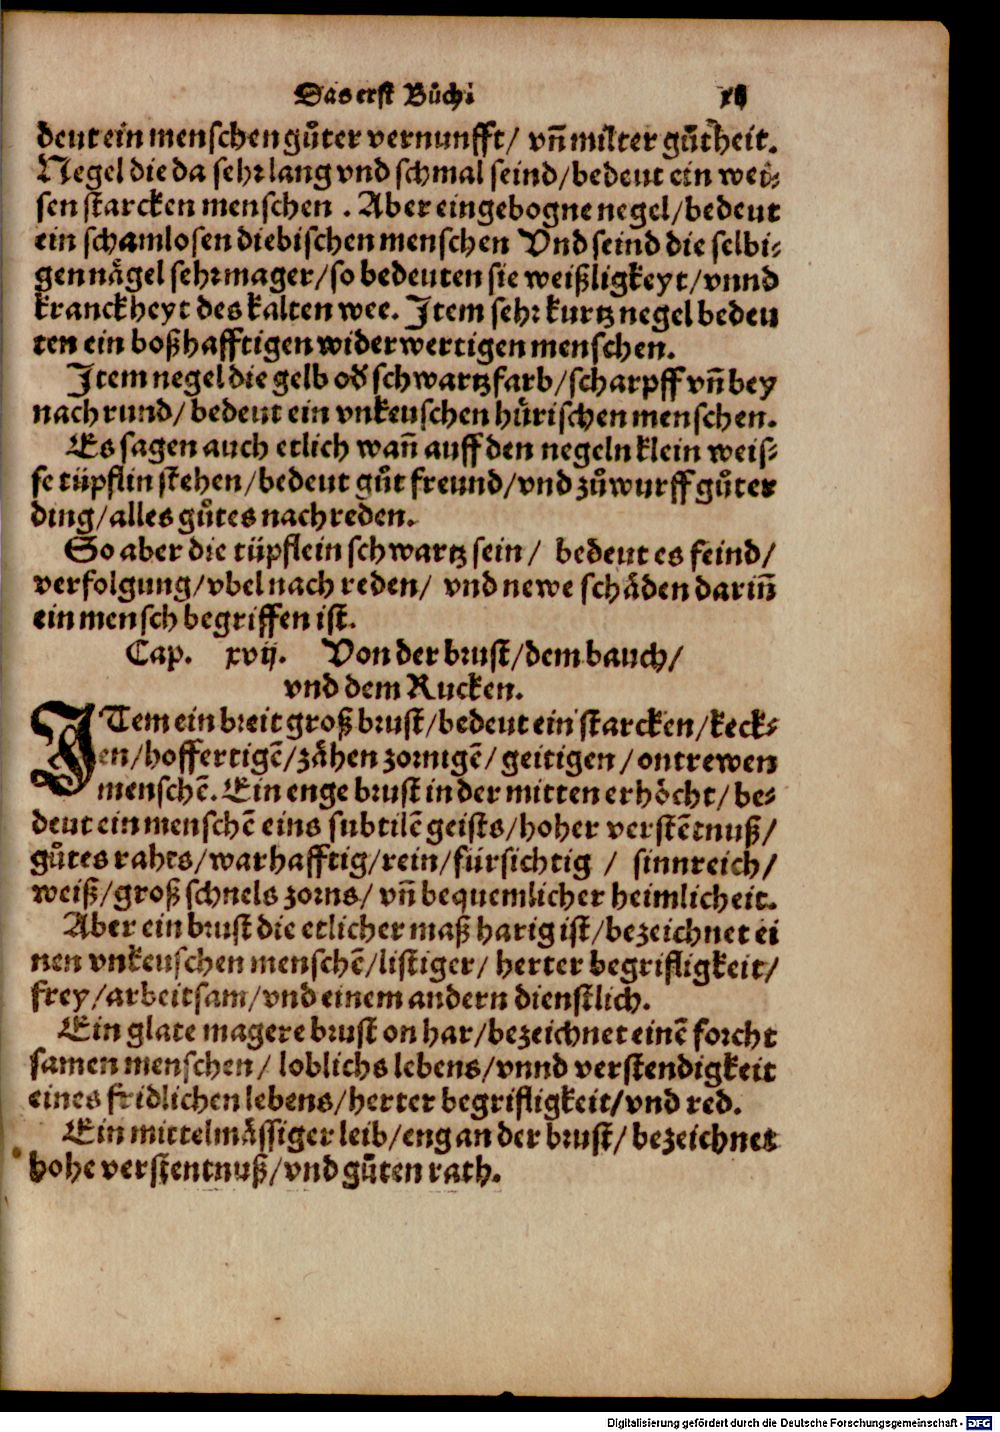 Das erst Bůch.
deut ein menschen gůter vernunfft/ vñ milter gůtheit.
Negel die da sehr lang vnd schmal seind/bedeut ein wei⸗
sen starcken menschen . Aber eingebogne negel/bedeut
ein schamlosen diebischen menschen Vnd seind die selbi⸗
gen nägel sehr mager/so bedeuten sie weißligkeyt/vnnd
kranckheyt des kalten wee. Item sehr kurtz negel bedeu
ten ein boßhafftigen widerwertigen menschen.
Item negel die gelb oď schwartzfarb/scharpff vñ bey
nach rund/ bedeut ein vnkeuschen hůrischen menschen.
Es sagen auch etlich wañ auff den negeln klein weis⸗
se tüpflin stehen/bedeut gůt freund/vnd zůwurff gůter
ding/alles gůtes nachreden.
So aber die tüpflein schwartz sein/ bedeut es feind/
verfolgung/vbel nach reden/ vnd newe schäden dariñ
ein mensch begriffen ist.
Cap. xvij. Von der brust/dem bauch/
vnd dem Rucken.
ITem ein breit groß brust/bedeut ein starcken/keck⸗
en/hoffertigē/zähen zornigē/ geitigen/ontrewen
menschē. Ein enge brust in der mitten erhöcht/ be⸗
deut ein menschē eins subtilē geists/hoher verstētnuß/
gůtes rahts/warhafftig/rein/fürsichtig / sinnreich/
weiß/groß schnels zorns/ vñ bequemlicher heimlicheit.
Aber ein brust die etlicher maß harig ist/bezeichnet ei
nen vnkeuschen menschē/listiger/ herter begrifligkeit/
frey/arbeitsam/vnd einem andern dienstlich.
Ein glate magere brust on har/bezeichnet einē forcht
samen menschen/ loblichs lebens/vnnd verstendigkeit
eines fridlichen lebens/herter begrifligkeit/vnd red.
Ein mittelmässiger leib/eng an der brust/ bezeichnet
hohe verstentnuß/vnd gůten rath.
Digitalisierung gefördert durch die Deutsche Forschungsgemeinschaft - DFG